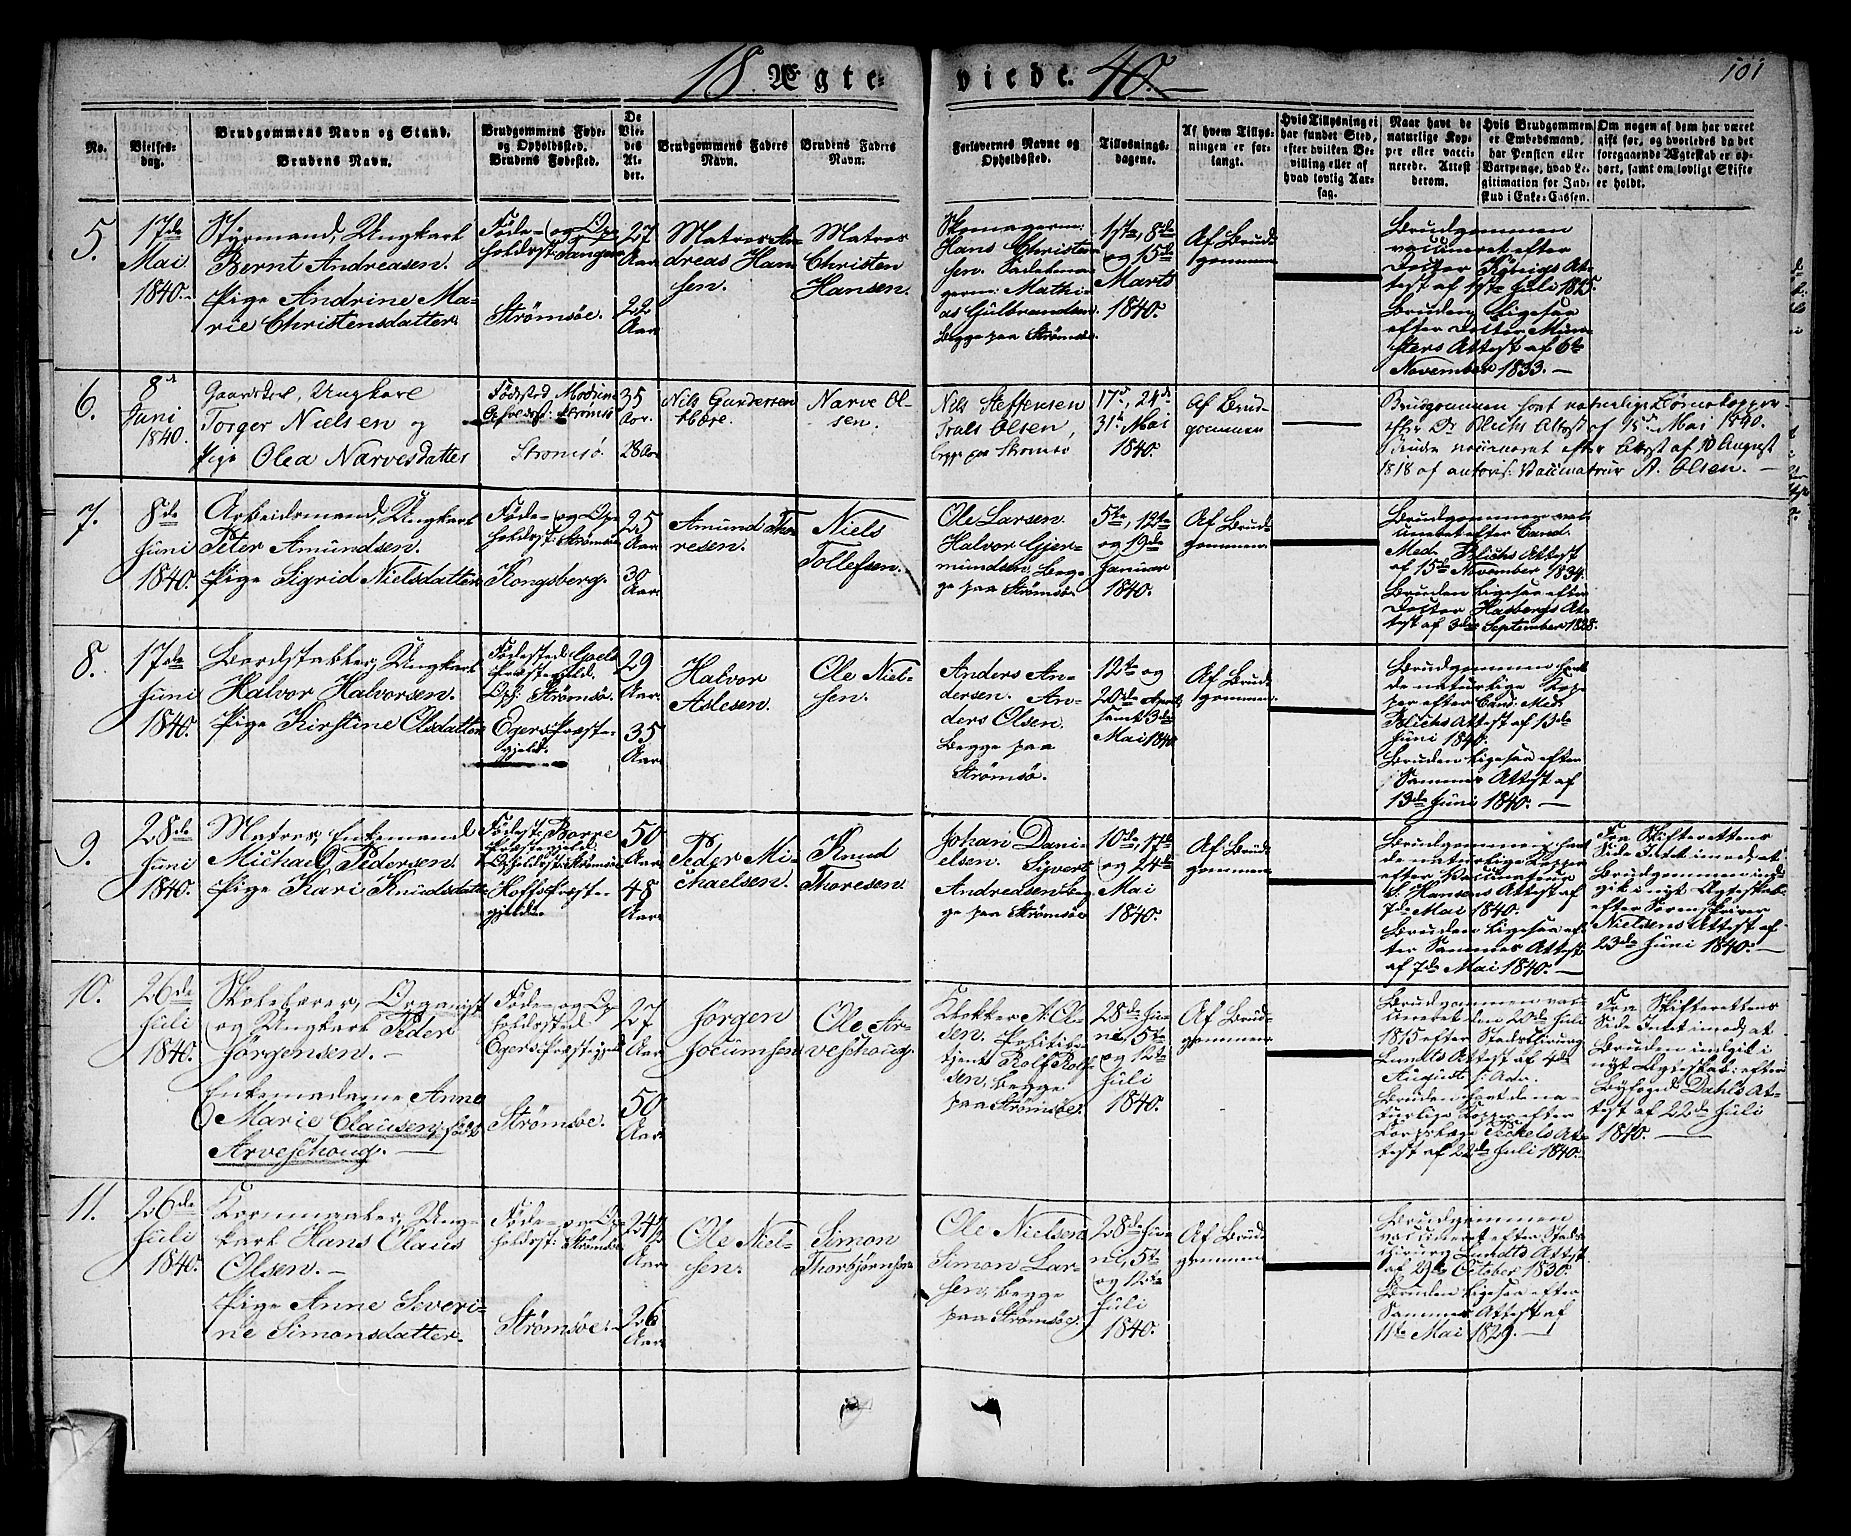 18 Ægte- viede. 40.
101
No.
Vielses-
dag.
Brudgommens Navn og Stand.
Brudens Navn.
Brudgommens Føde-
og Opholdssted.
Brudens Fødested.
De
Vie-
des
Al-
der.
Brudgommens Faders
Navn.
Brudens Faders
Navn.
Forlovernes Navne og
Opholdssted.
Tillysnings-
dagene.
Af hvem Tillys-
ningen er for-
langt.
Hvis Tillysning ei
har fundet Sted,
efter hvilken Be-
villing eller af
hvad lovlig Aar-
sag.
Naar havt de
naturlige Kop-
per eller vacci-
nerede. Attest
derom.
Hvis Brudgommen
er Embedsmand,
har Pension eller
Vartpenge, hvad Le-
gitimation for Ind-
skud i Enke-Cassen.
Om nogen af dem har været
gift før, og hvorledes da det
foregaaende Ægteskab er op-
hørt, samt om lovligt Skifte
er holdt.
5.
17de
Mai
1840.
Styrmand, Ungkarl
Bernt Andreasen.
Pige Andrine Ma-
rie Christensdatter.
Føde- og Op-
holdsst: Tangen
Strømsøe.
27
Aar.
22
Aar.
Matros An-
dreas Han-
sen.
Matros
Christen
Hansen.
Skomagerm:
Hans Christen-
sen. Sadelma-
germ: Mathi-
as Gulbrandsen
Begge paa Strømsøe.
1ste, 8de
og 15de
Marts
1840.
Af Brud-
gommen
Brudgommen
vaccineret efter
Doctor Königs At-
test af 1ste Juli 1825
Bruden Ligesaa
efter Doctor Mün-
sters Attest af 6te
November 1833.
6.
8de
Juni
1840.
Gaardsdrl, Ungkarl
Torger Nielsen og
Pige Olea Narvesdatter
Fødested Modum
Opholdsst: Strømsø
Stromsö
35
Aar.
28 Aar
Nils Gundersen
Narve Ol-
sen.
Nils Steffensen
Trols Olsen,
begge paa Stromsö
17de, 24de
31te Mai
1840.
Af Brud-
gommen
Brudgommen havt naturlige Børnekopper
efter Dr Blichs Attest af 15de Mai 1840.
Bruden vaccineret efter Attest af 10 August
1818 af autoris: Vaccinateur A. Olsen.
7.
8de
Juni
1840.
Arbeidsmand, Ungkarl
Peter Amundsen.
Pige Sigrid Nielsdatter
Føde- og Op-
holdsst: Strømsøe
Kongsberg.
25
Aar.
30
Aar.
Amund Tho-
resen.
Niels
Tollefsen.
Ole Larsen.
Halvor Gjer-
mundsen. Beg-
ge paa Strømsøe.
5te, 12te
og 19de
Januar
1840.
Af Brud-
gommen
Brudgommen vac-
cineret efter Cand.
Med. Blichs Attest
af 15te November 1834.
Bruden Ligesaa efter
Doctor Hasbergs At-
test af 3die September 1828.
8.
17de
Juni
1840.
Bordstabler, Ungkarl
Halvor Halvorsen.
Pige Kirstine Olsdatter
Fødested: Goels
Præstegjeld.
Oph: Strømsøe.
Egers Præste-
gjeld.
29
Aar.
35
Aar.
Halvor
Aslesen.
Ole Niel-
sen.
Anders An-
dersen. An-
ders Olsen.
Begge paa
Strømsø.
12te og
20de April
samt 3die
Mai 1840
Af Brud-
gommen.
Brudgommen havt
de naturlige Kop-
per efter Cand: Med.
Blichs Attest af 13de
Juni 1840.
Bruden Ligesaa efter
Sammes Attest af
13de Juni 1840.
9.
28de
Juni
1840.
Matros, Enkemand
Michael Pedersen.
Pige Kari Knudsdatter
Fødest: Borre
Præstegjeld
Opholdsst: Strømsøe
Hoffs Præste-
gjeld.
50
Aar.
48
Aar.
Peder Mi-
chaelsen.
Knud
Thoresen.
Johan Dani-
elsen. Sivert
Andreasen beg-
ge paa Strømsøe
10de, 17de
og 24de
Mai
1840.
Af Brud-
gommen.
Brudgommen havt
de naturlige Kopper
efter Vaccinateur
C. Hansens Attest af
7de Mai 1840.
Bruden Ligesaa ef-
ter Sammes Attest
af 7de Mai 1840.
Fra Skifterettens
Side Intet imod, at
Brudgommen ind-
gik i nyt Ægteskab
efter Sorenskriver
Nielsens Attest af
23de Juni 1840.
10.
26de
Juli
1840.
Skolelærer, Organist
og Ungkarl Peder
Jörgensen.
Enkemadame Anne
Marie Clausen, född
Arveschoug.
Føde- og Op-
holdssted
Egers Præstegjeld
Strømsøe.
27
Aar.
50
Aar.
Jörgen
Jocumsen
Ole Ar-
veschoug.
Klokker A. Ol-
sen. Politibe-
tjent Rolf Rolf-
sen, begge
paa Strømsøe.
28de Ju-
ni, 5te
og 12te
Juli
1840.
Af Brud-
gommen
Brudgommen vac-
cineret den 20de Juli
1815 efter Stadschirurg
Lundts Attest af 4de
Augusts s: Aar.
Bruden havt de na-
turlige Kopper efter
Corpslæge Tockels At-
test af 22de Juli 1840.
Fra Skifterettens
Side Intet imod, at
Bruden indgik i
nyt Ægteskab, efter
Byfoged Dahls At-
test af 22de Juli
1840.
11.
26de
Juli
1840.
Kornmaaler, Ung-
karl Hans Claus
Olsen.
Pige Anne Severi-
ne Simonsdatter.
Føde- og Op-
holdsst: Strømsøe
Strømsøe.
24½
Aar.
26
Aar.
Ole Niel-
sen.
Simon
Thorbjørnsen
Ole Nielsen
Simon Lar-
sen, begge
paa Strømsøe.
28de Ju-
ni, 5te
og 12te
Juli
1840.
Af Brud-
gommen.
Brudgommen
vaccineret efter Stads-
chirurg Lundts Attest
af 29de October 1830.
Bruden Ligesaa efter
Sammes Attest af
11te Mai 1829.